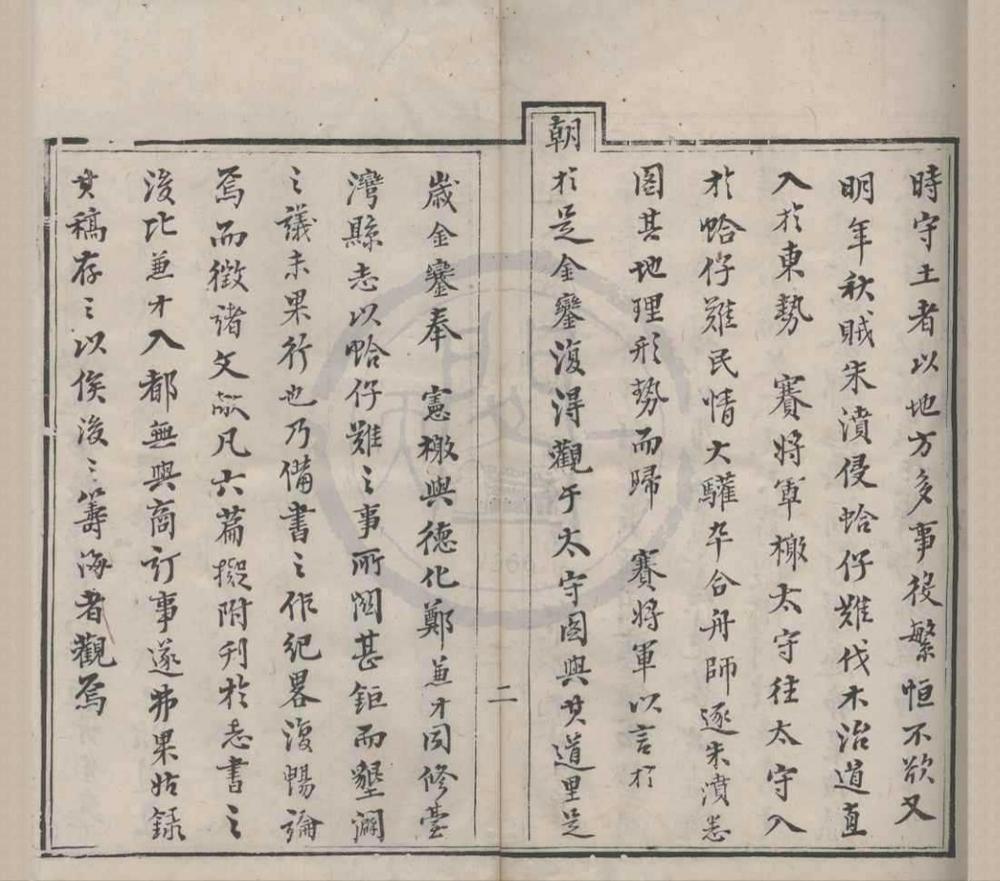 時守土者以地方多事役繁恒不欲又
明年秋賊朱濆侵蛤仔難伐木治道直
入於東勢 賽將軍檄太守往太守入
於蛤仔難民情大驩卒合舟師逐朱濆悉
圖其地理形勢而歸 賽將軍以言於
朝於是金鑾復得觀于太守圖與其道里是
歲金鑾奉 憲檄與德化鄭兼才同修臺
灣縣志以蛤仔難之事所關甚鉅而墾闢
之議未果行也乃備書之作紀畧復暢論
焉而徵諸文献凡六篇擬附刊於志書之
後比兼才入都無與商訂事遂弗果姑録
其稿存之以俟後之籌海者觀焉
二